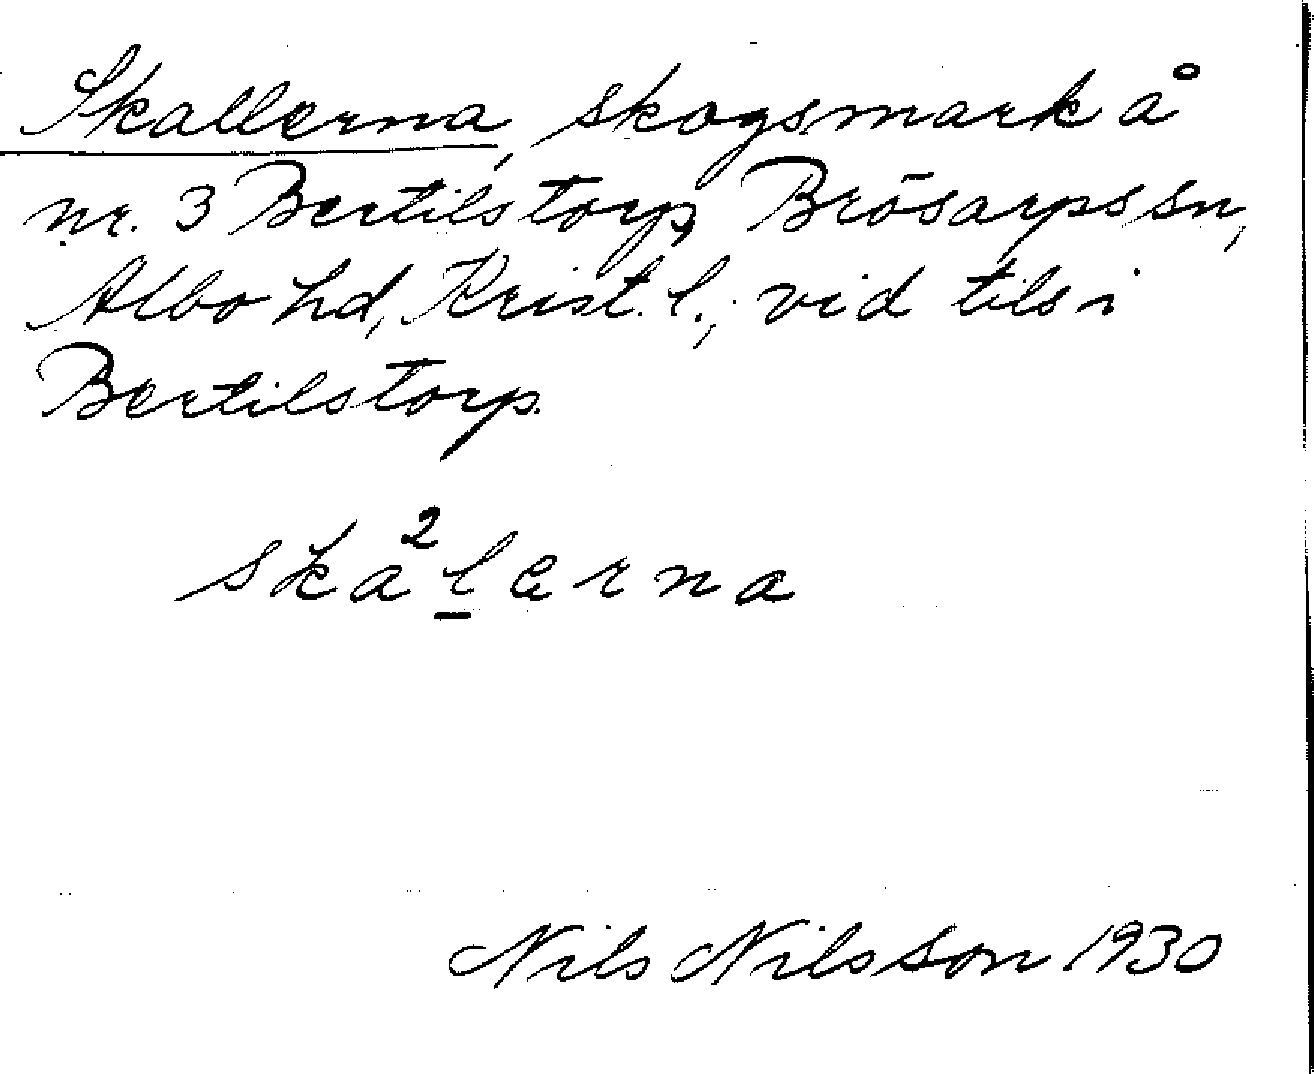 Skallerna, skogsmark å
nr. 3 Bertilstorp, Brösarps sn,
Albo hd, Krist. l.; vid tils i
Bertilstorp.
ska²l̲erna
Nils Nilsson 1930